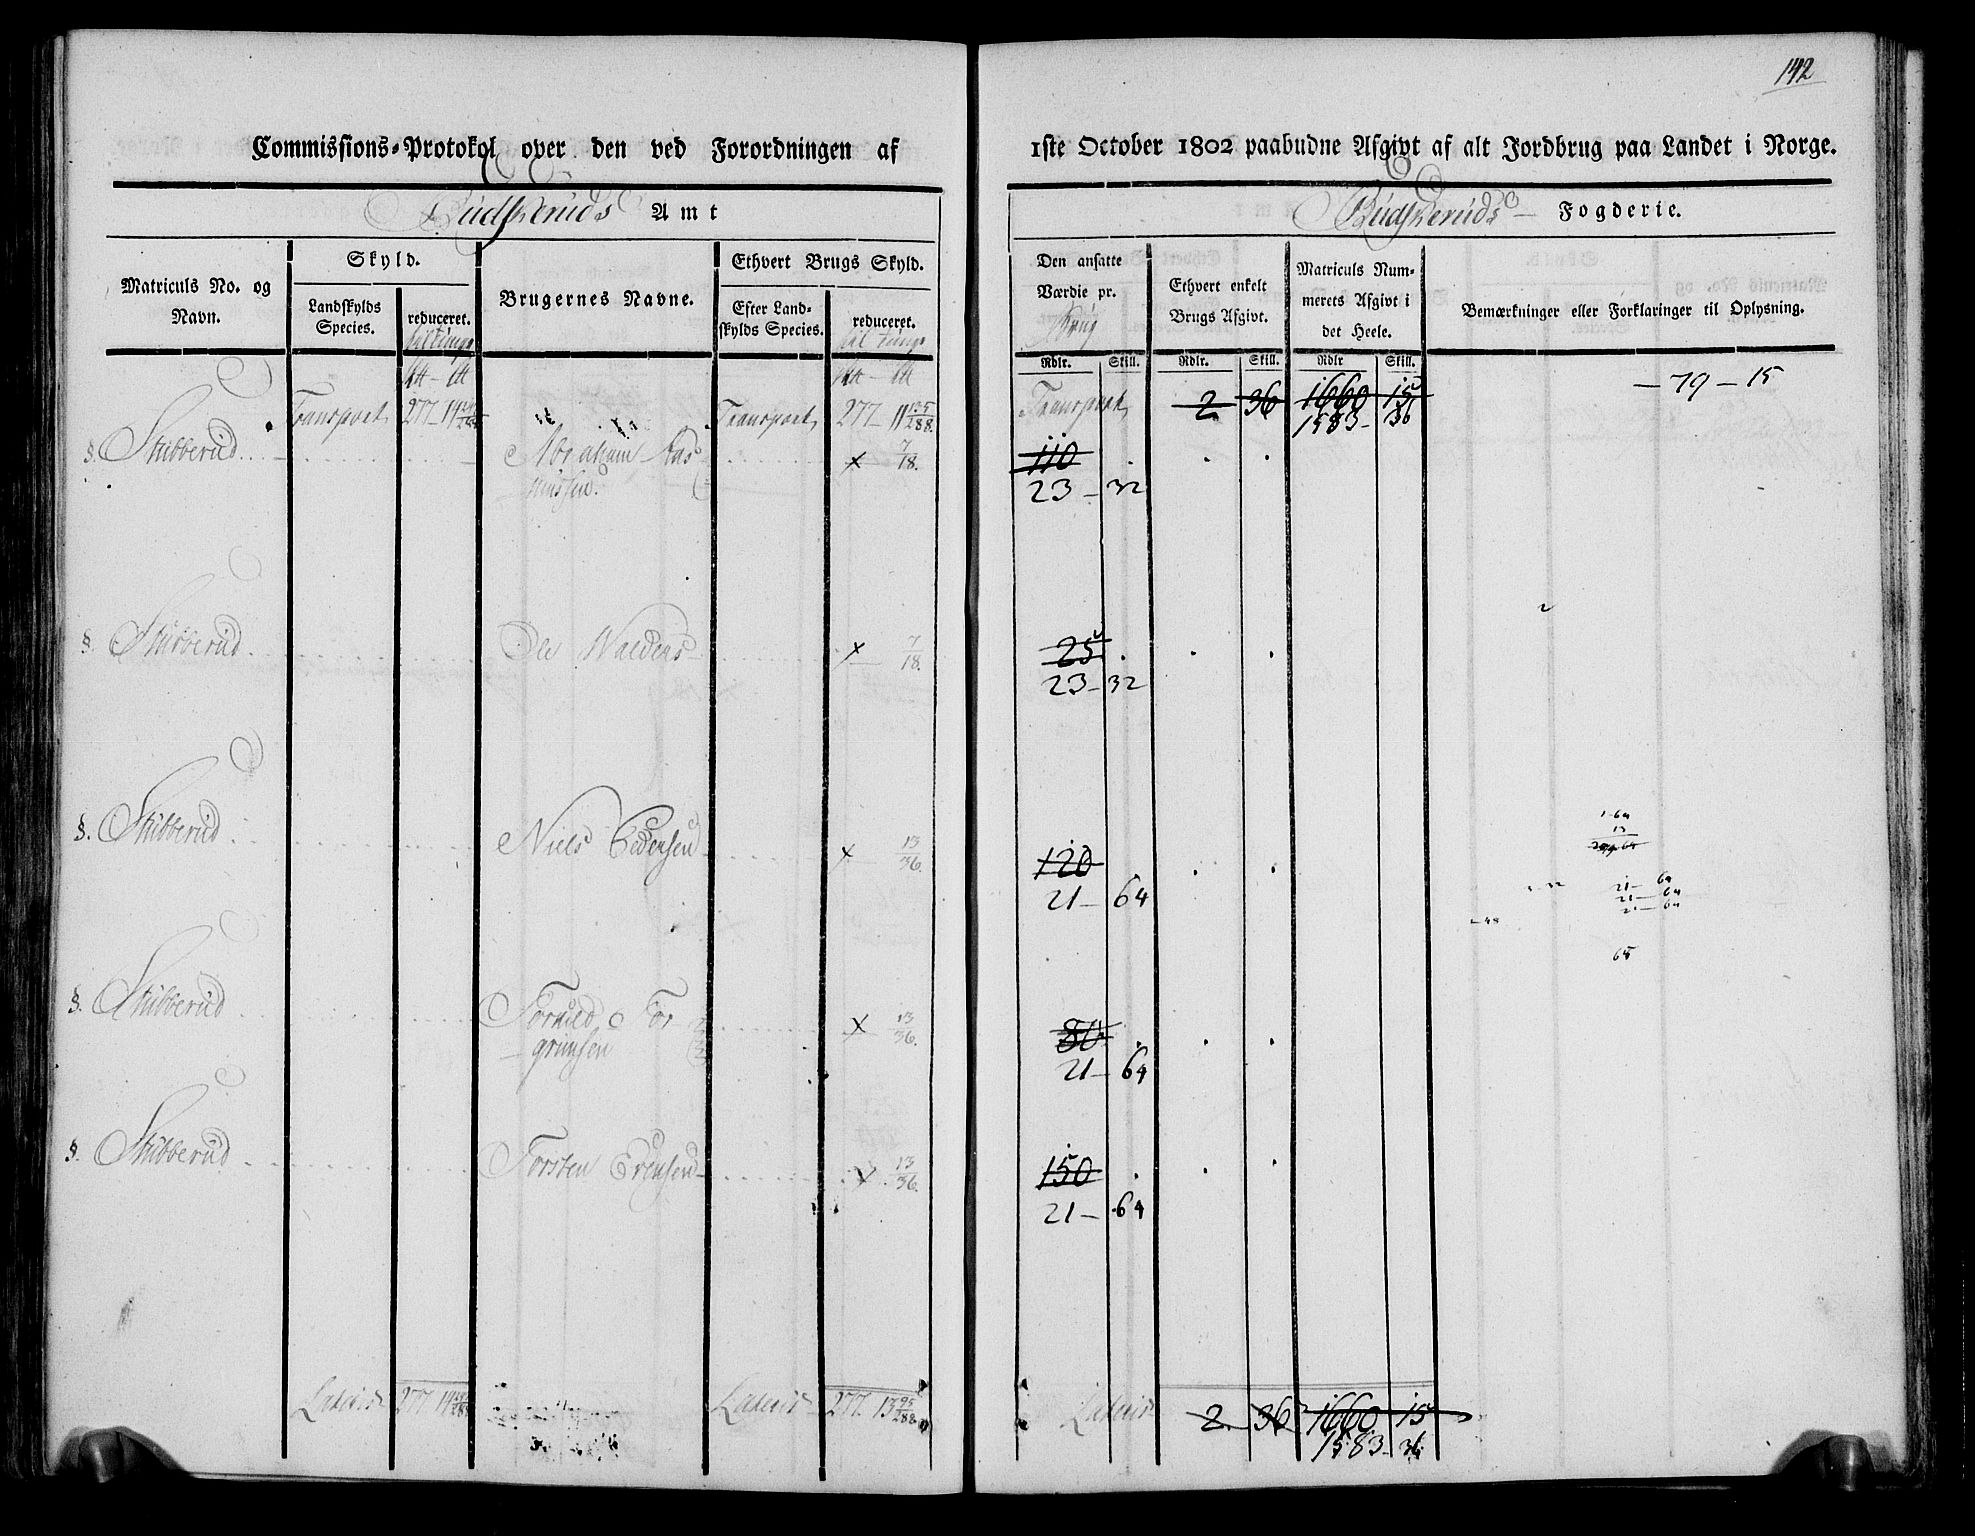 142
Commissions-Protokol over den ved Forordningen af
1ste October 1802 paabudne Afgivt af alt Jordbrug paa Landet i Norge.
Budskeruds Amt
Budskeruds Fogderie.
Matriculs No. og Navn.
Skyld.
Landskylds Species.
reduceret.
Brugernes Navne.
Ethvert Brugs Skyld.
Efter Landskylds Species.
reduceret.
Den ansatte Værdie pr.
Brug
Ethvert enkelt Brugs Afgivt.
Matriculs Nummerets Afgivt i det Heele.
Bemærkninger eller Forklaringer til Oplysning.
Rdlr. Skill. Rdlr. Skill. Rdlr Skill.
Transport 277 Transport 277 - 11 135/288 Transport 2 36 1660 15 — 79 — 15
1583 - 36
§. Stubberud Abraham Ras x 7/18. 110
mussen. 23 - 32
§. Stubberud Ole x 7/18. 25
23 - 32
§. Stubberud Niels Pedersen x 13/36. 120
21 - 64
§. Stubberud Tor x 13/36. 80
grimsen 21 - 64
§. Stubberud Torsten x 13/36. 150
21 - 64
Lateris 277 Lateris 277 13 95/288 Lateris 2 36 1660 15
1583 - 36
1-64
13
21 - 64
21 - 64
64